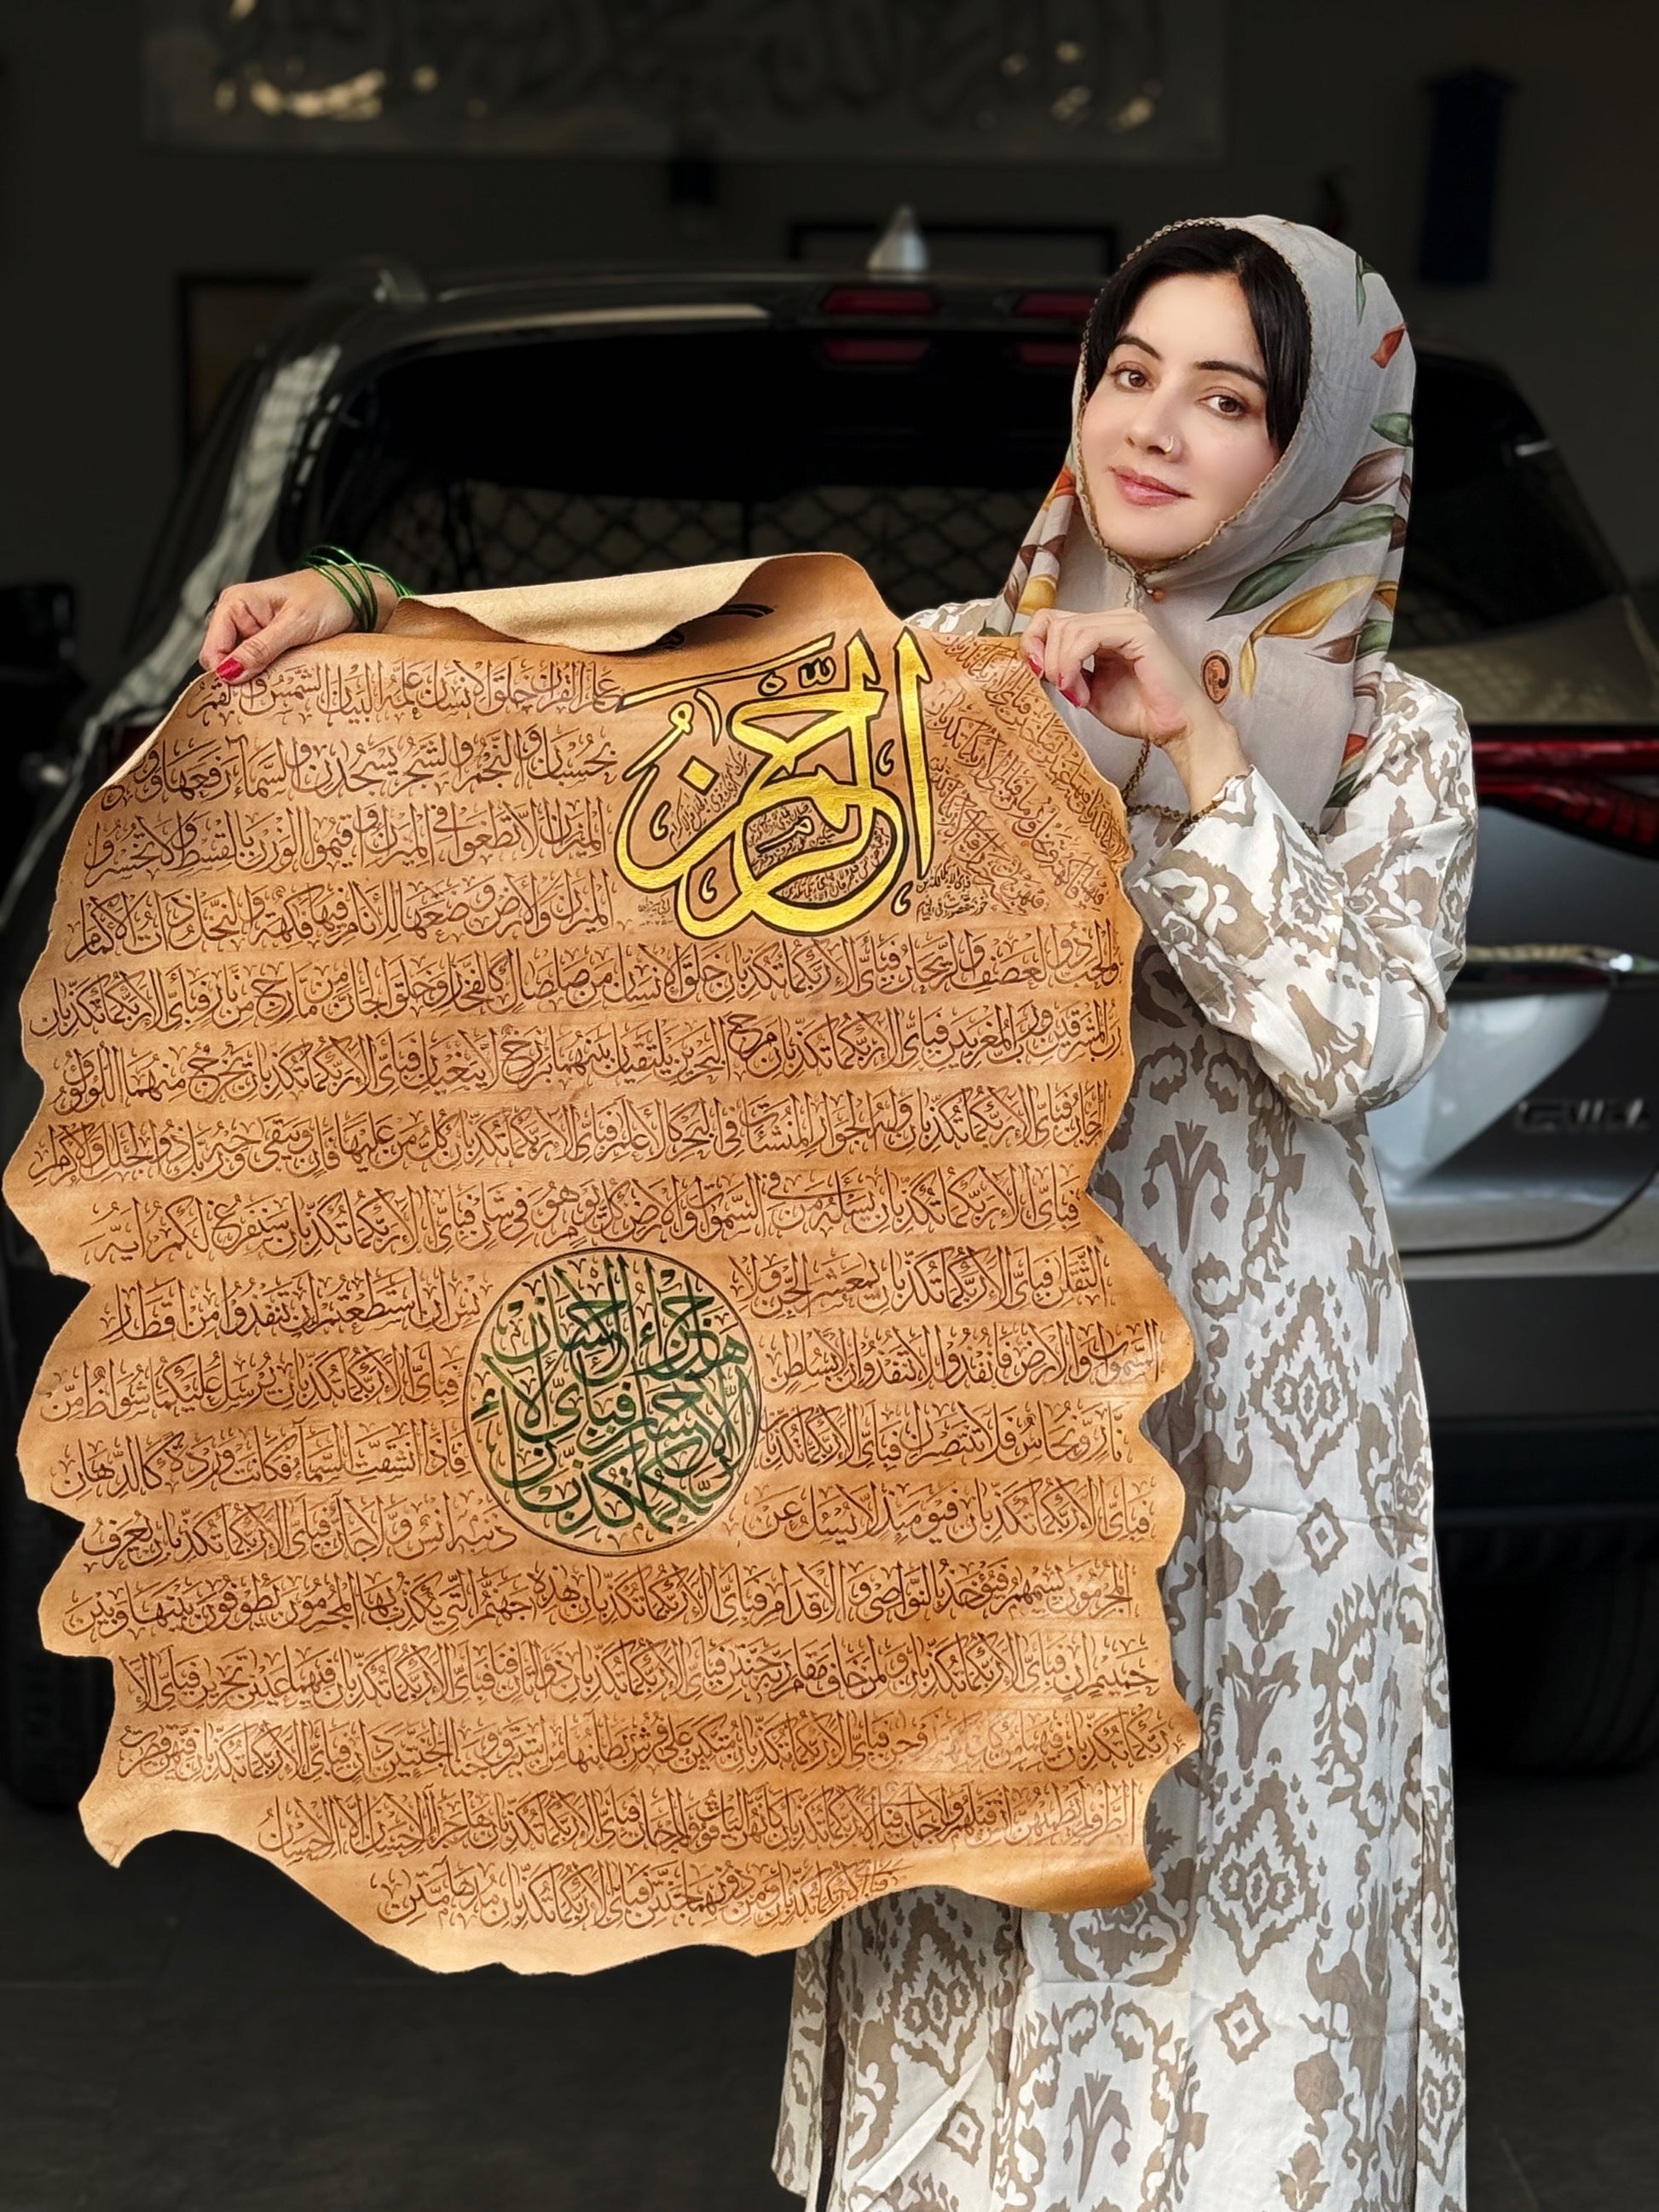 الرحمن
علم القرآن خلق الإنسان علمه البيان الشمس والقمر
بحسبان والنجم والشجر يسجدان والسماء رفعها و
الميزان ألا تطغوا في الميزان وأقيموا الوزن بالقسط ولا تخسروا
الميزان والأرض وضعها للأنام فيها فاكهة والنخل ذات الأكمام
والحب ذو العصف والريحان فبأي آلاء ربكما تكذبان خلق الإنسان من صلصال كالفخار وخلق الجان من مارج من نار فبأي آلاء ربكما تكذبان
رب المشرقين ورب المغربين فبأي آلاء ربكما تكذبان مرج البحرين يلتقيان بينهما برزخ لا يبغيان فبأي آلاء ربكما تكذبان يخرج منهما اللؤلؤ وال
فبأي آلاء ربكما تكذبان وله الجوار المنشئات في البحر كالأعلام فبأي آلاء ربكما تكذبان كل من عليها فان ويبقى وجه ربك ذو الجلال والإكرام
فبأي آلاء ربكما تكذبان يسأله من في السموات والأرض كل يوم هو في شأن فبأي آلاء ربكما تكذبان سنفرغ لكم أيه
الثقلن فبأي آلاء ربكما تكذبان يمعشر الجن والا
نس إن استطعتم أن تنفذوا من أقطار
السموات والأرض فانفذوا لا تنفذون إلا بسلطن
فبأي آلاء ربكما تكذبان يرسل عليكما شواظ من
نار ونحاس فلا تنتصران فبأي آلاء ربكما تكذبان
فإذا انشقت السماء فكانت وردة كالدهان
فبأي آلاء ربكما تكذبان فيومئذ لا يسئل عن
ذنبه إنس ولا جان فبأي آلاء ربكما تكذبان يعرف
هل جزاء الإحسان إلا الإحسان فبأي آلاء ربكما تكذبان
المجرمون بسيمهم فيؤخذ بالنواصي والأقدام فبأي آلاء ربكما تكذبان هذه جهنم التي يكذب بها المجرمون يطوفون بينها وبين
حميم آن فبأي آلاء ربكما تكذبان ولمن خاف مقام ربه جنتن فبأي آلاء ربكما تكذبان ذواتا أفنان فبأي آلاء ربكما تكذبان فيهما عينن تجرين فبأي آلاء
ربكما تكذبان فيهما من كل فبأي آلاء ربكما تكذبان متكئين على فرش بطائنها من إستبرق وجنا الجنتين دان فبأي آلاء ربكما تكذبان فيهن قصرت
الطرف لم يطمثهن إنس قبلهم ولا جان فبأي آلاء ربكما تكذبان كأنهن الياقوت والمرجان فبأي آلاء ربكما تكذبان هل جزاء الإحسان إلا الإحسان
فبأي آلاء ربكما تكذبان ومن دونهما جنتن فبأي آلاء ربكما تكذبان مدهامتن